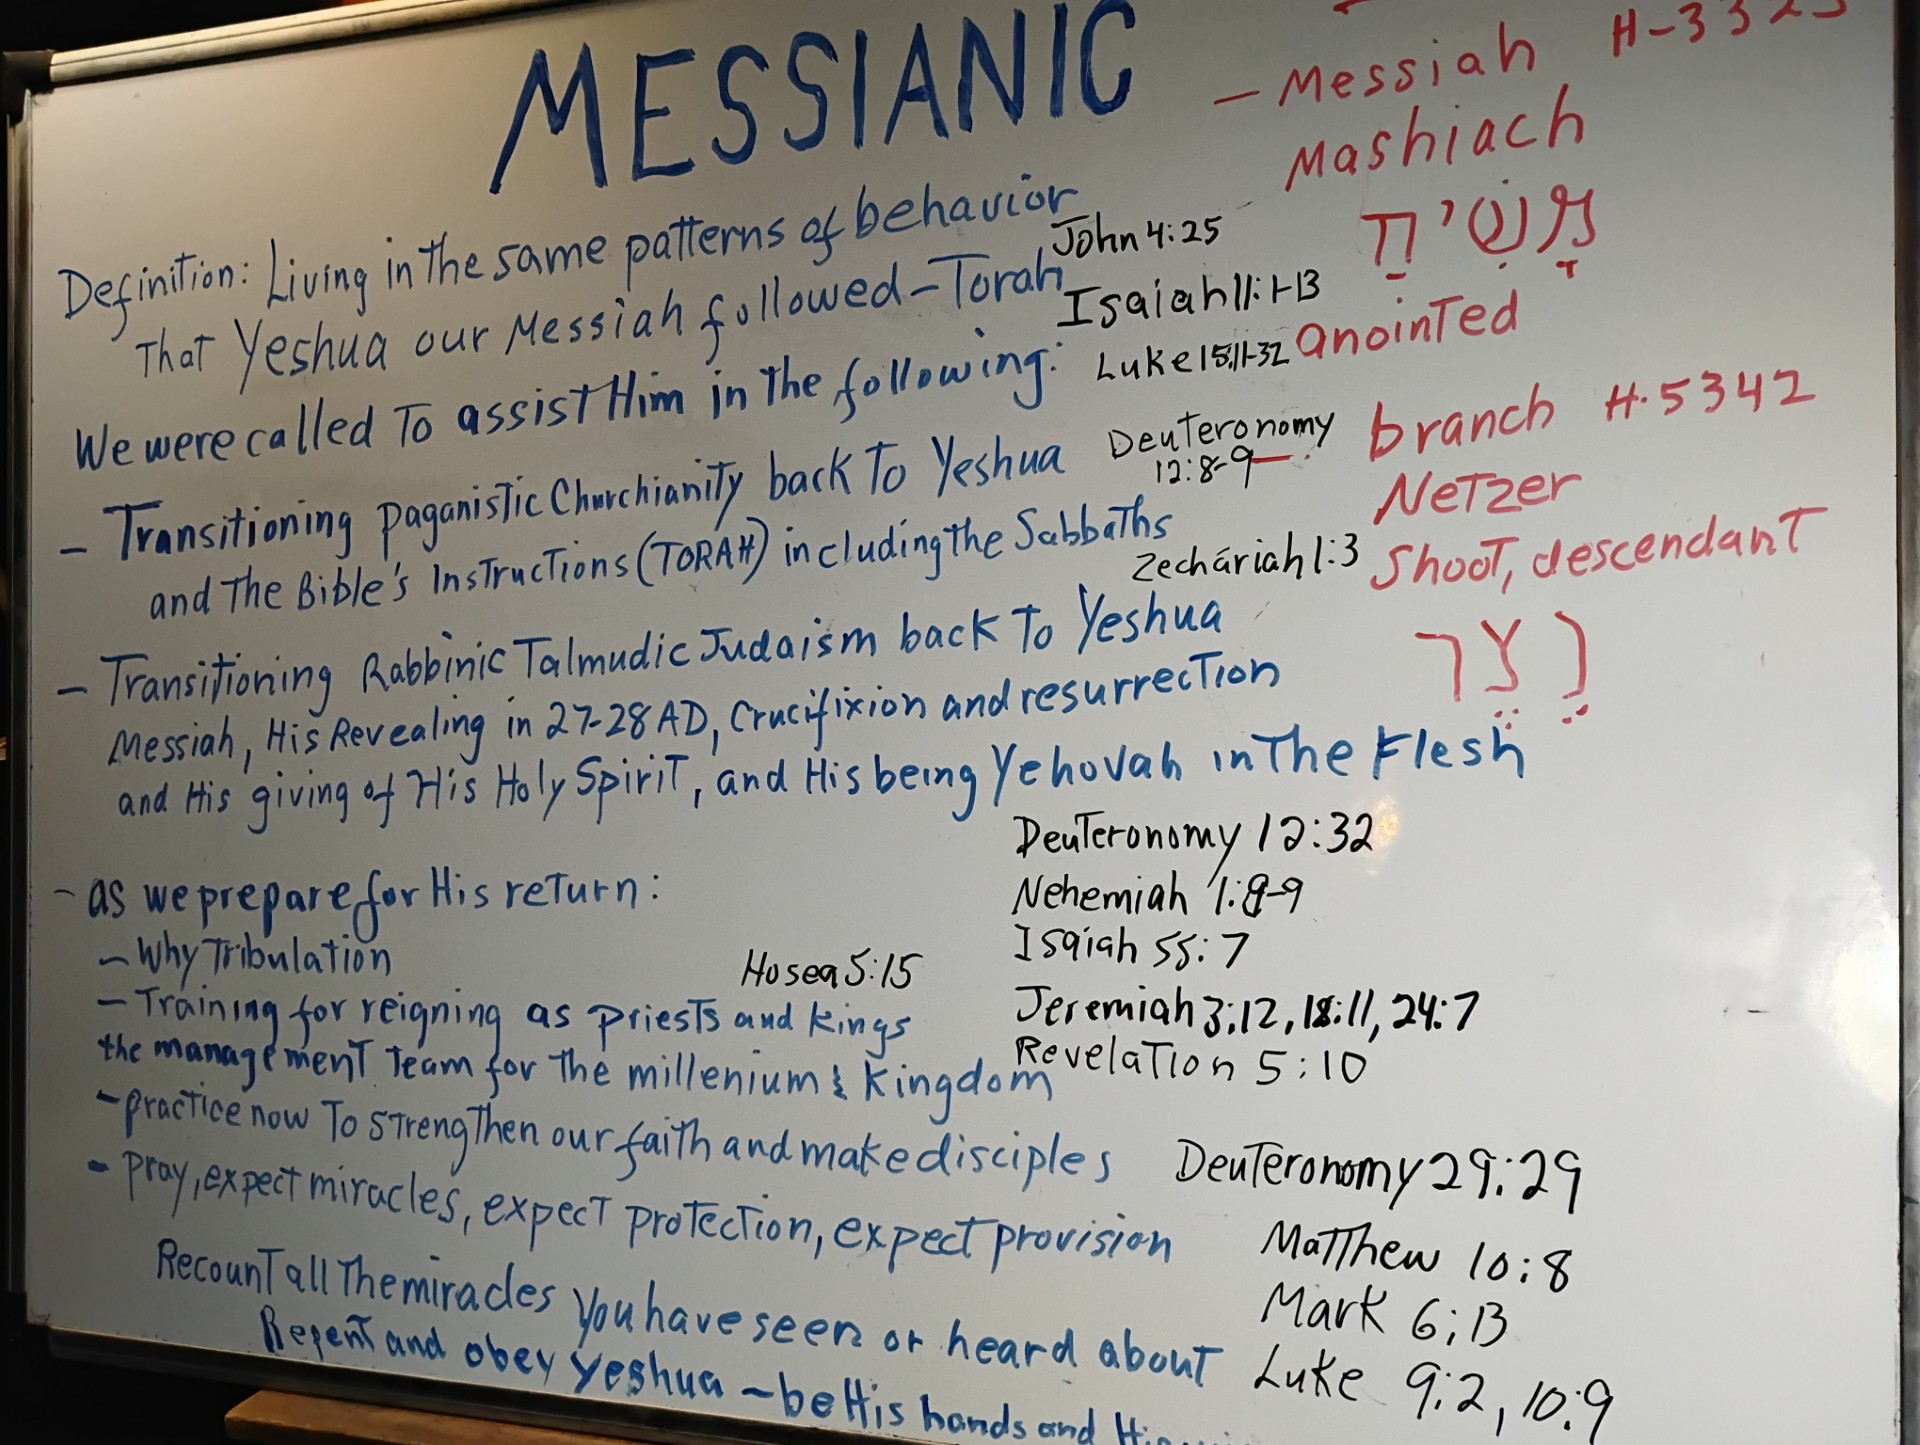 MESSIANIC
Definition: Living in the same patterns of behavior
That Yeshua our Messiah followed - Torah
We were called To assist Him in the following:
- Transitioning Paganistic Churchianity back To Yeshua
and The Bible's Instructions (TORAH) including the Sabbaths
- Transitioning Rabbinic Talmudic Judaism back To Yeshua
Messiah, His Revealing in 27-28 AD, Crucifixion and resurrection
and His giving of His Holy Spirit, and His being Yehovah in The Flesh
- as we prepare for His return:
- Why Tribulation
- Training for reigning as priests and kings
the management Team for the millenium & kingdom
- practice now To strengthen our faith and make disciples
- pray, expect miracles, expect protection, expect provision
Recount all The miracles you have seen or heard about
Repent and obey Yeshua - be His hands and
John 4:25
Isaiah 11:1-13
Luke 15:11-32
Deuteronomy
12:8-9
Zechariah 1:3
Hosea 5:15
Deuteronomy 12:32
Nehemiah 1:8-9
Isaiah 55:7
Jeremiah 3:12, 18:11, 24:7
Revelation 5:10
Deuteronomy 29:29
Matthew 10:8
Mark 6:13
Luke 9:2, 10:9
- Messiah H-3323
Mashiach
מָשִׁיחַ
anointed
branch H-5342
Netzer
Shoot, descendant
נֵצֶר